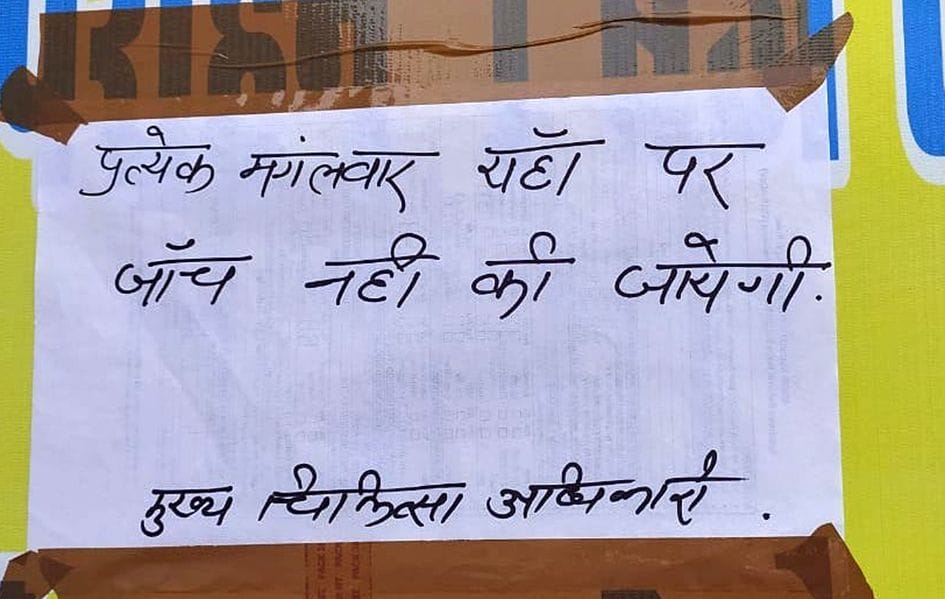 प्रत्येक मगंलवार यहाँ पर
जाँच नही की जायेगी.
मुख्य चिकित्सा अधिकारी .